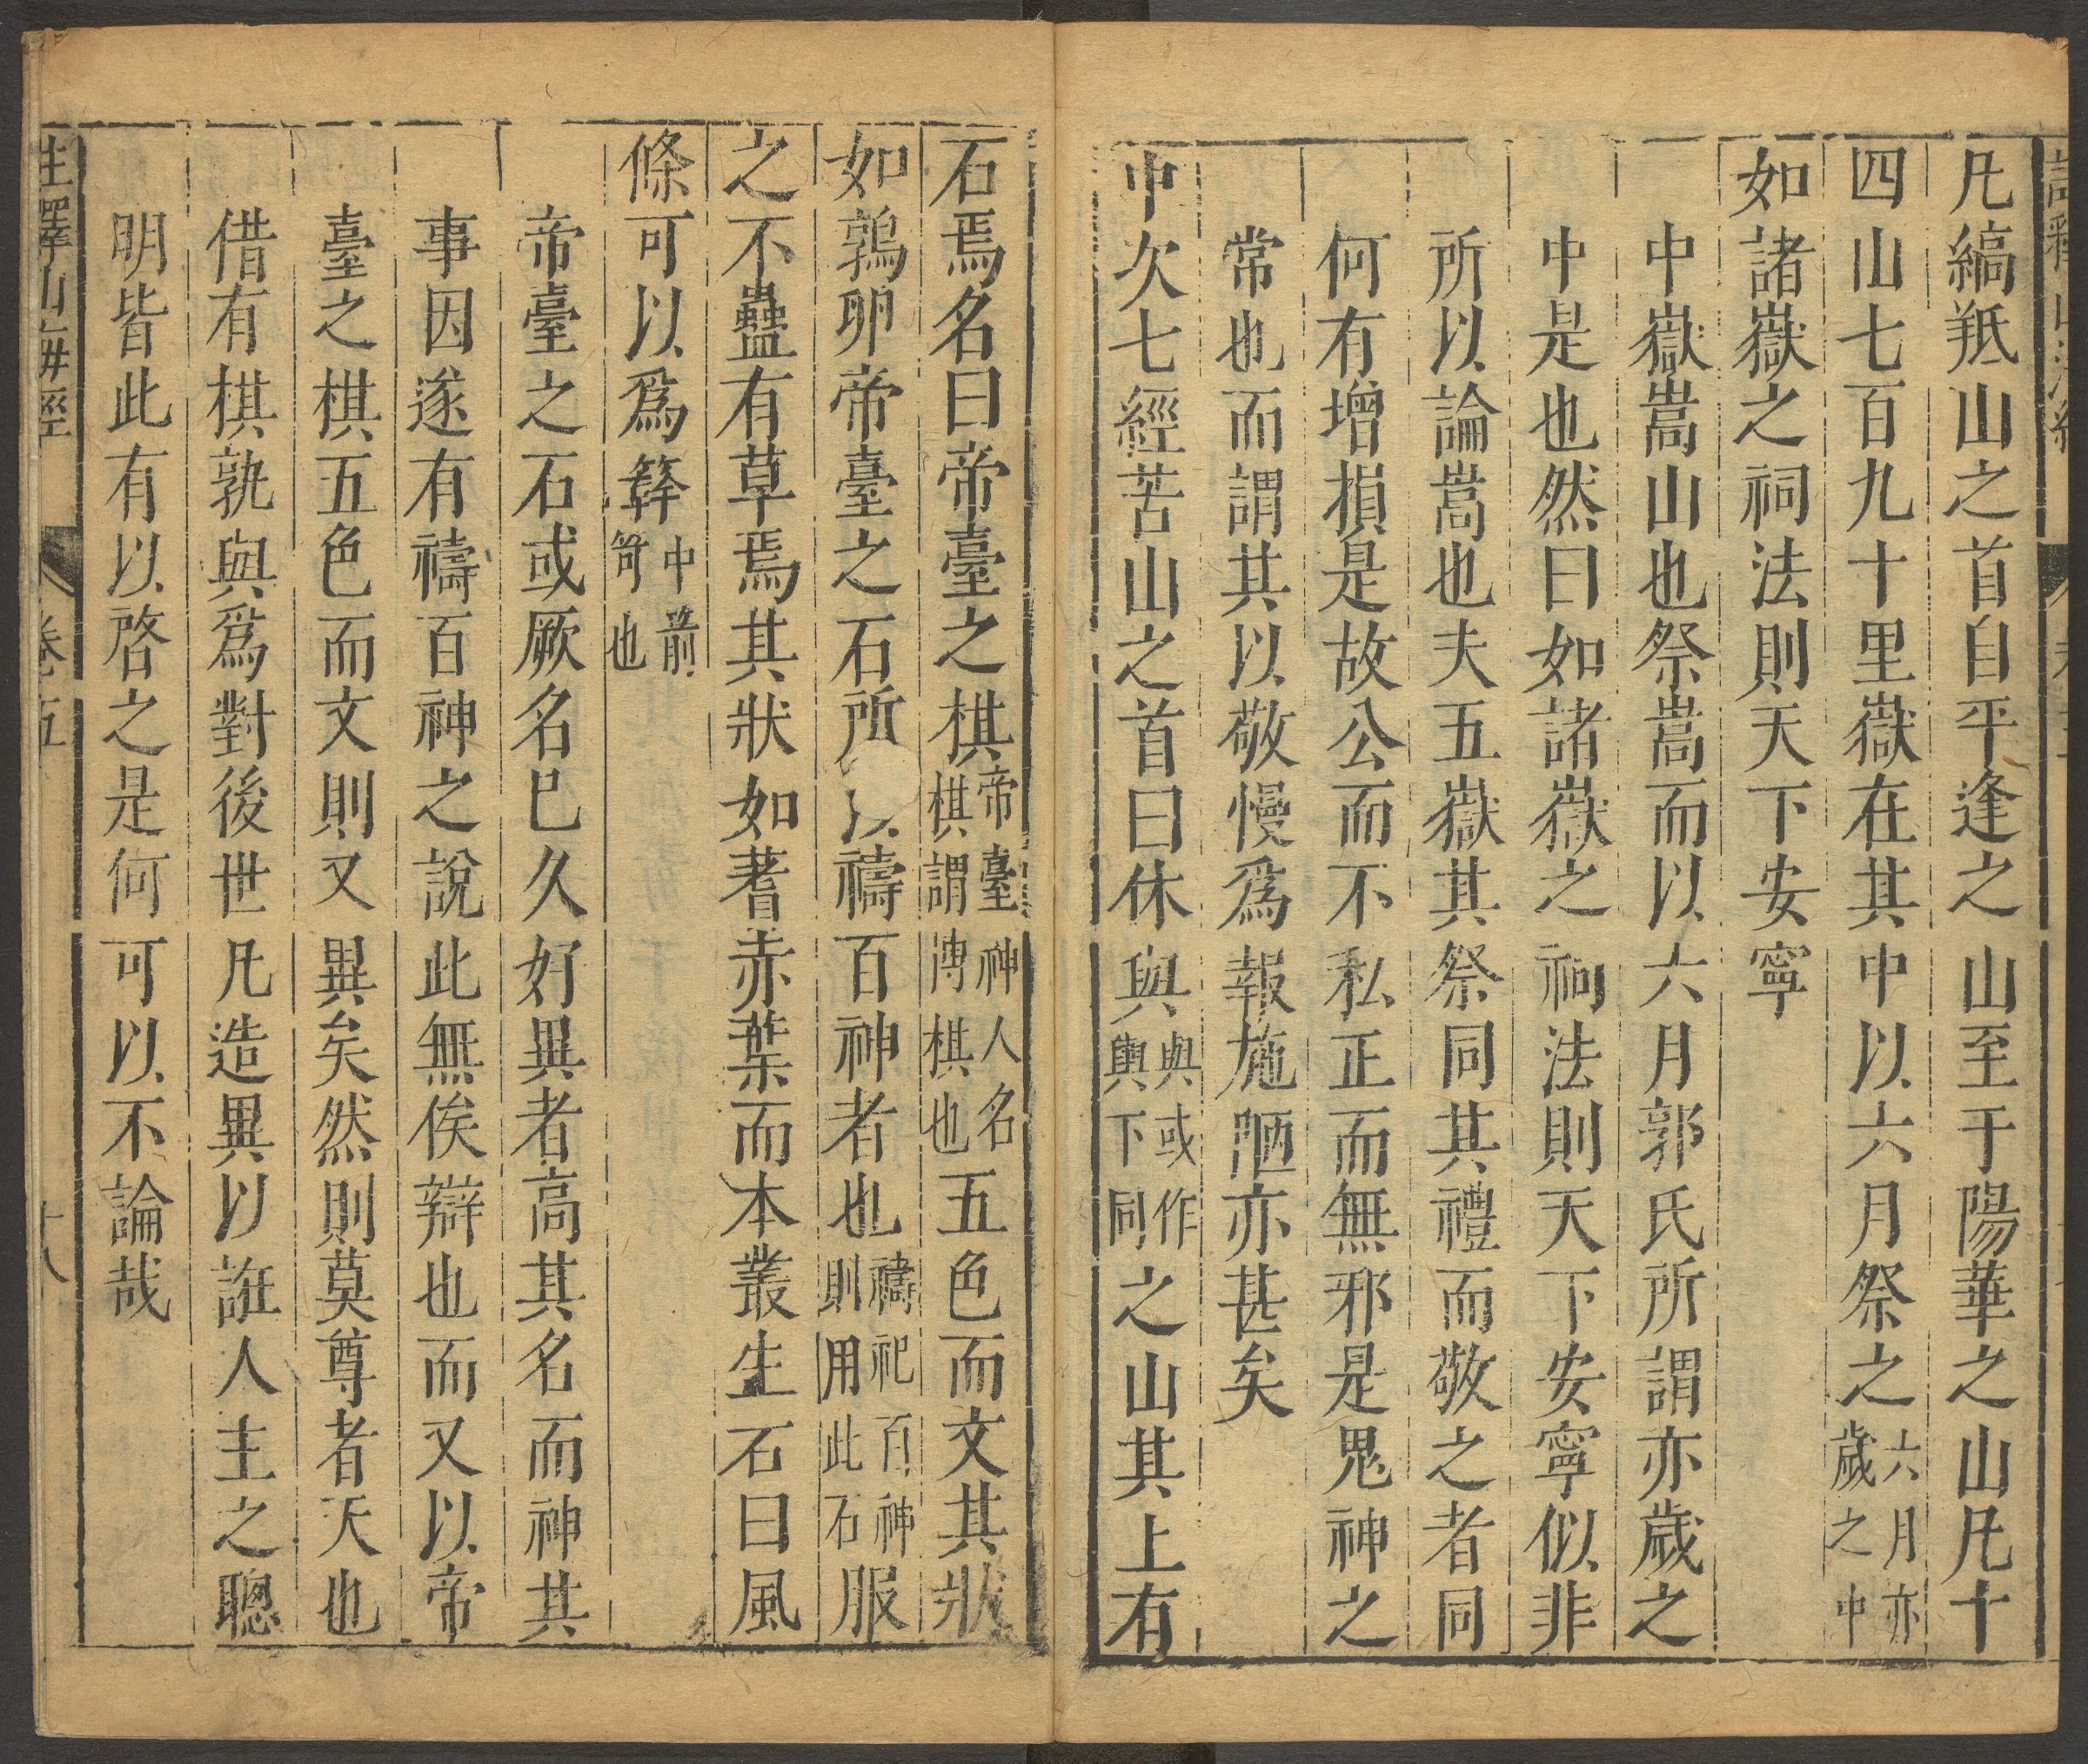 凡縞羝山之首自平逢之山至于陽華之山凡十
四山七百九十里嶽在其中以六月祭之六月亦歲之中
如諸嶽之祠法則天下安寧
中嶽嵩山也祭嵩而以六月郭氏所謂亦歲之
中是也然曰如諸嶽之祠法則天下安寧似非
所以論嵩也夫五嶽其祭同其禮而敬之者同
何有增損是故公而不私正而無邪是鬼神之
常也而謂其以敬慢為報施陋亦甚矣
中次七經苦山之首曰休與與或作輿下同之山其上有
石焉名曰帝臺之棋帝臺神人名棋謂博棋也五色而文其狀
如鶉卵帝臺之石所以禱百神者也禱祀百神則用此石服
之不蠱有草焉其狀如蓍赤葉而本叢生石曰風
條可以為簳中箭笴也
帝臺之石或厥名已久好異者高其名而神其
事因遂有禱百神之說此無俟辯也而又以帝
臺之棋五色而文則又異矣然則莫尊者天也
借有棋孰與為對後世凡造異以誑人主之聰
明皆此有以啓之是何可以不論哉
注釋山海經
卷五
十八